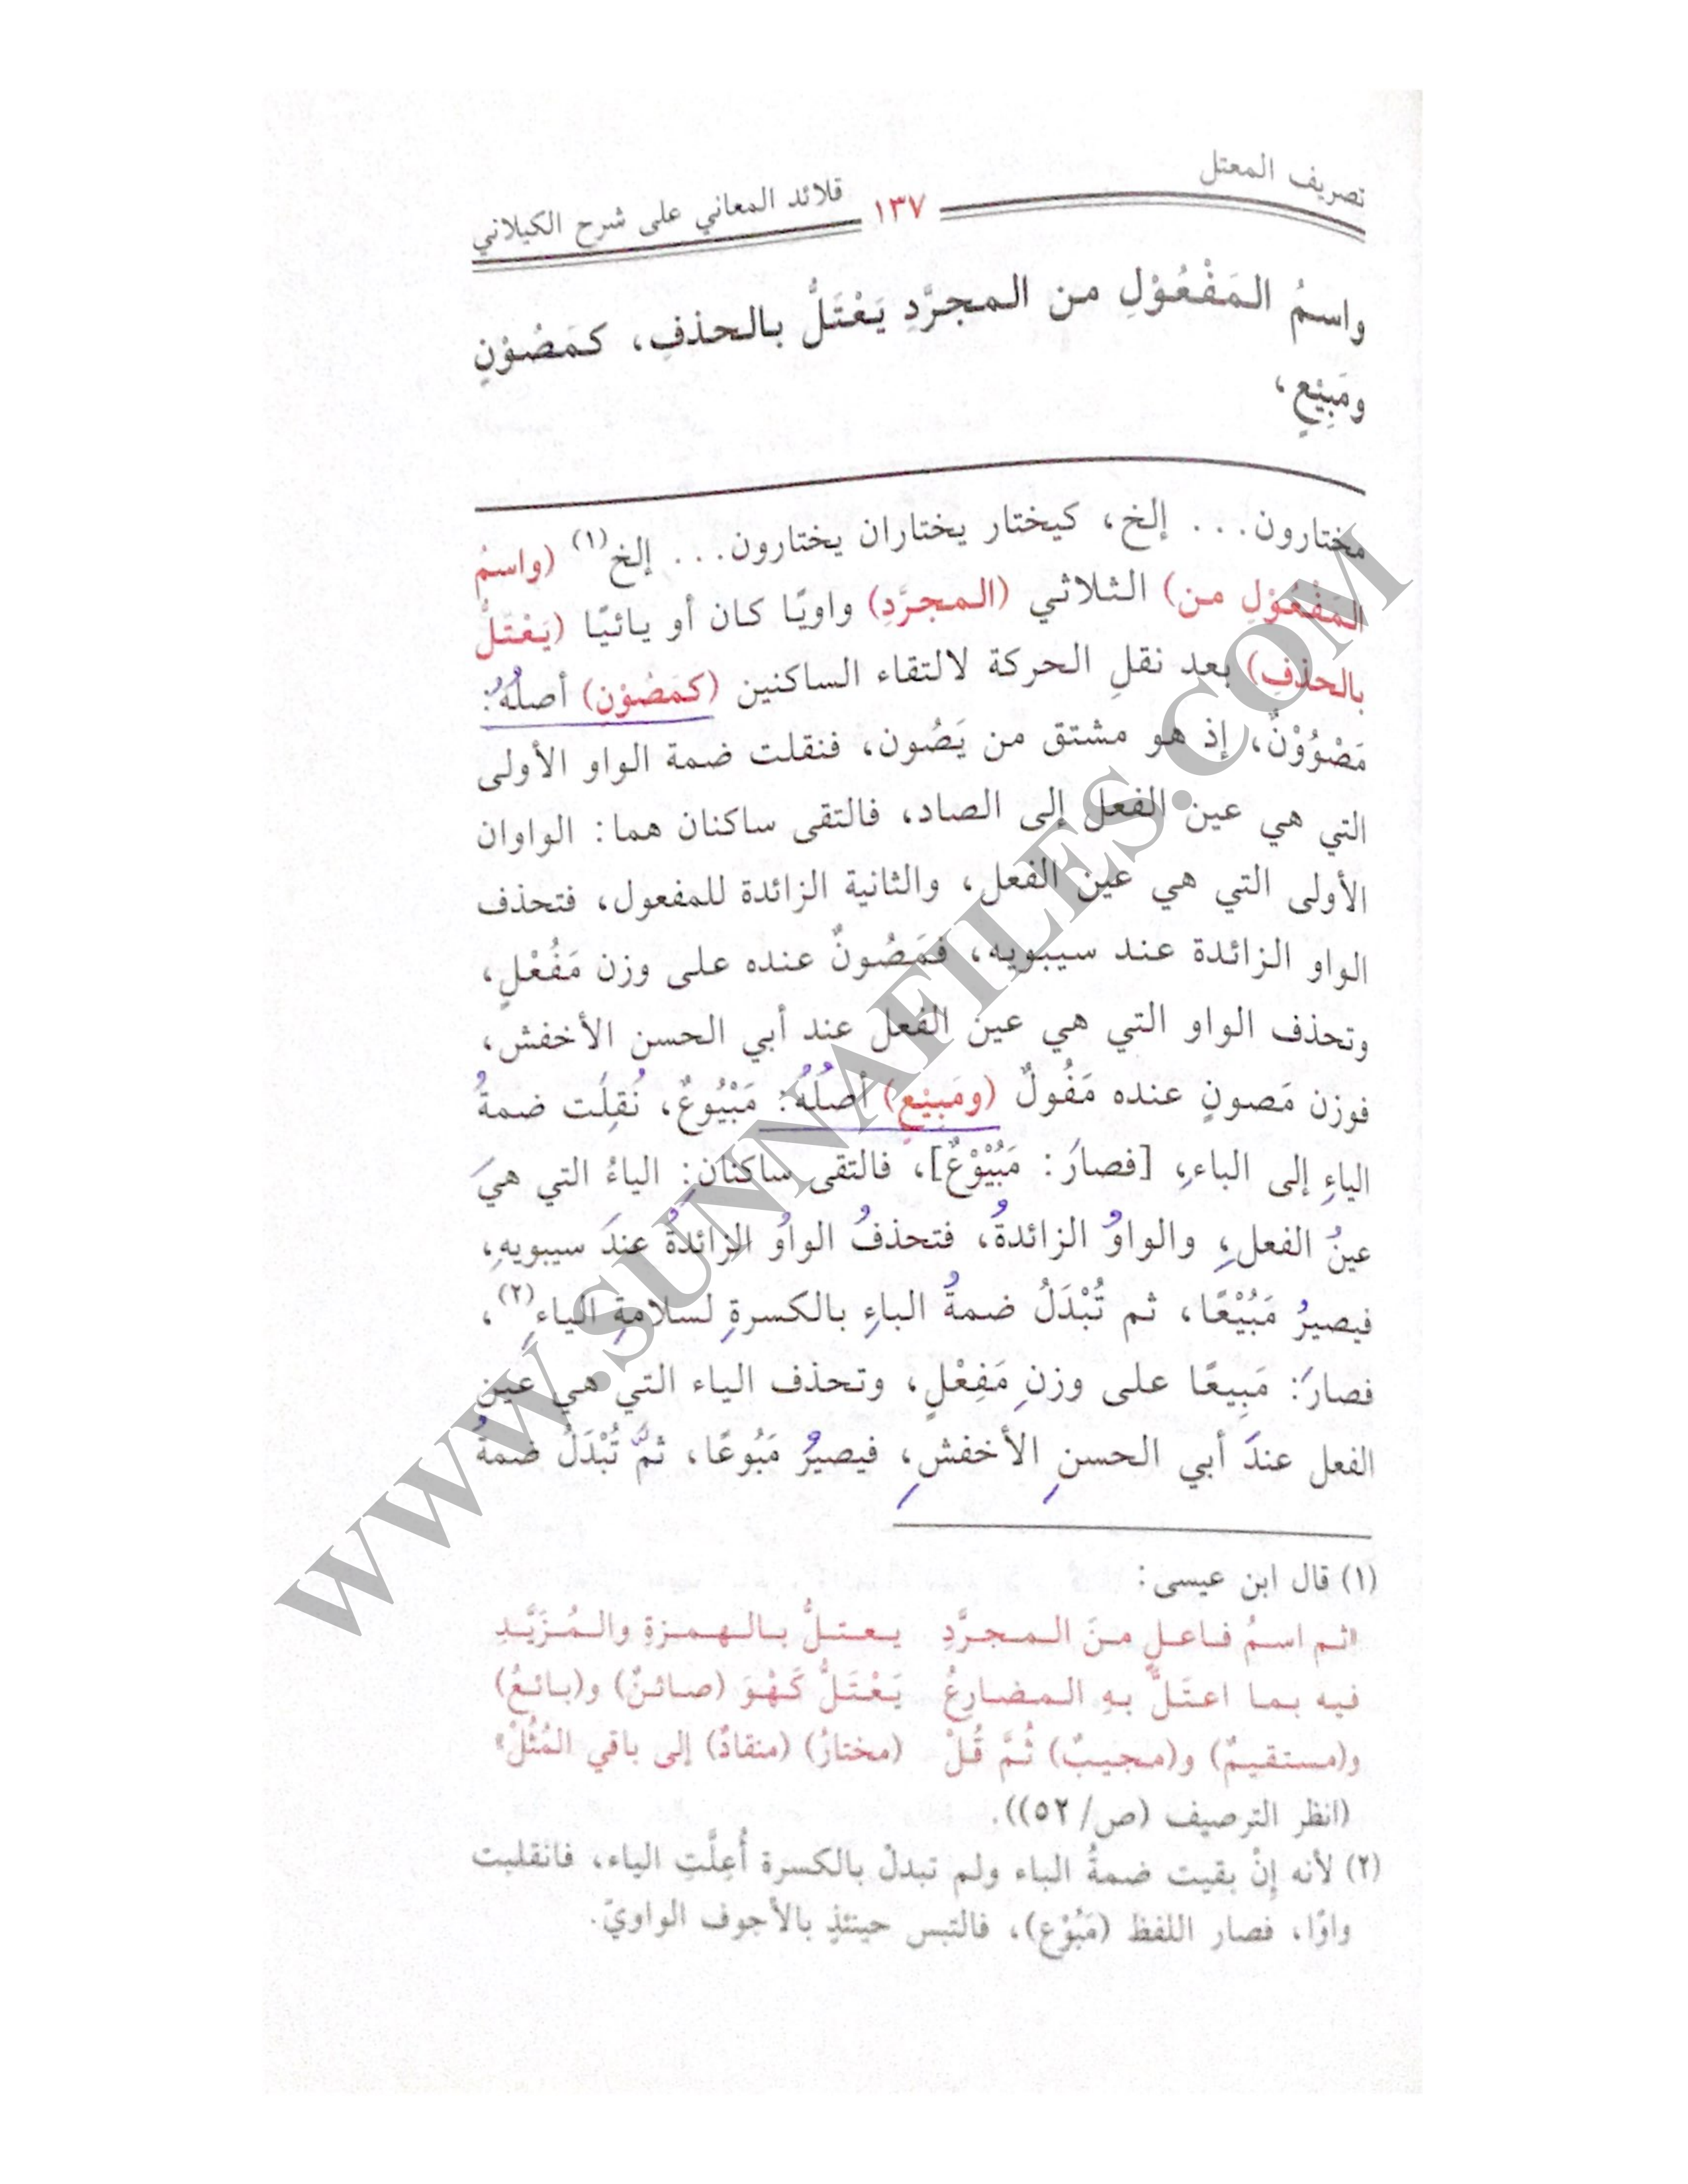 تصريف المعتل ١٣٧ قلائد المعاني على شرح الكيلاني
واسمُ المَفْعُوْلِ من المجرَّدِ يَعْتَلُّ بالحذفِ، كمَصُوْنٍ
ومَبِيْعٍ،
مختارون... إلخ، كيختار يختاران يختارون... إلخ(١) (واسمُ
المَفْعُوْلِ من) الثلاثي (المجرَّدِ) واويًا كان أو يائيًا (يَعْتَلُّ
بالحذفِ) بعد نقلِ الحركة لالتقاء الساكنين (كمَصُوْن) أصلُهُ:
مَصْوُوْنٌ، إذ هو مشتق من يَصُون، فنقلت ضمة الواو الأولى
التي هي عين الفعل إلى الصاد، فالتقى ساكنان هما: الواوان
الأولى التي هي عين الفعل، والثانية الزائدة للمفعول، فتحذف
الواو الزائدة عند سيبويه، فمَصُونٌ عنده على وزن مَفُعْلٍ،
وتحذف الواو التي هي عين الفعل عند أبي الحسن الأخفش،
فوزن مَصونٍ عنده مَفُولٌ (ومَبِيْعٍ) أصلُهُ: مَبْيُوعٌ، نُقِلَت ضمةُ
الياءِ إلى الباءِ، [فصارَ: مَبُيْوْعٌ]، فالتقى ساكنانِ: الياءُ التي هيَ
عينُ الفعلِ، والواوُ الزائدةُ، فتحذفُ الواوُ الزائدةُ عندَ سيبويهِ،
فيصيرُ مَبُيْعًا، ثم تُبْدَلُ ضمةُ الباءِ بالكسرةِ لسلامةِ الياءِ(٢)،
فصارَ: مَبِيعًا على وزنِ مَفِعْلٍ، وتحذف الياء التي هي عين
الفعل عندَ أبي الحسنِ الأخفشِ، فيصيرُ مَبُوعًا، ثمَّ تُبْدَلُ ضمةُ
(١) قال ابن عيسى:
«ثم اسمُ فاعلٍ منَ المجرَّدِ يعتلُّ بالهمزةِ والمُزَيَّدِ
فيه بما اعتَلَّ بهِ المضارِعُ يَعْتَلُّ كَهْوَ (صائنٌ) و(بائعُ)
و(مستقيمٌ) و(مجيبٌ) ثُمَّ قُلْ (مختارُ) (منقادٌ) إلى باقي المُثُلْ»
(انظر الترصيف (ص/ ٥٢)).
(٢) لأنه إنْ بقيت ضمةُ الباء ولم تبدلْ بالكسرة أُعِلَّتِ الياء، فانقلبت
واوًا، فصار اللفظ (مَبُوْع)، فالتبس حينئذٍ بالأجوف الواويّ.
WWW.SUNNAFILES.COM